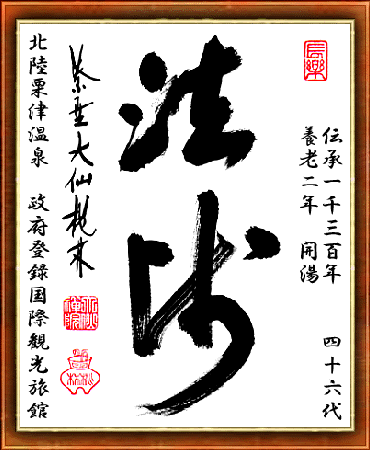 長樂
伝承一千三百年 四十六代
養老二年 開湯
法師
大仙
北陸粟津温泉 政府登録国際觀光旅館